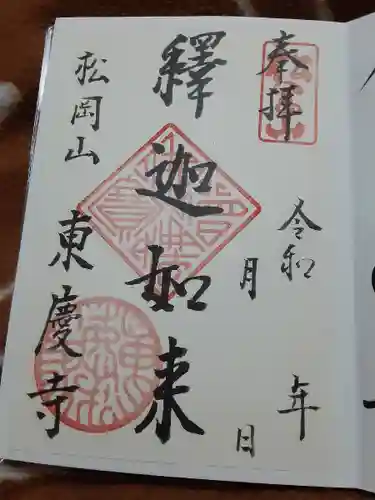 奉拝
令和 年
月 日
釋迦如来
松岡山
東慶寺